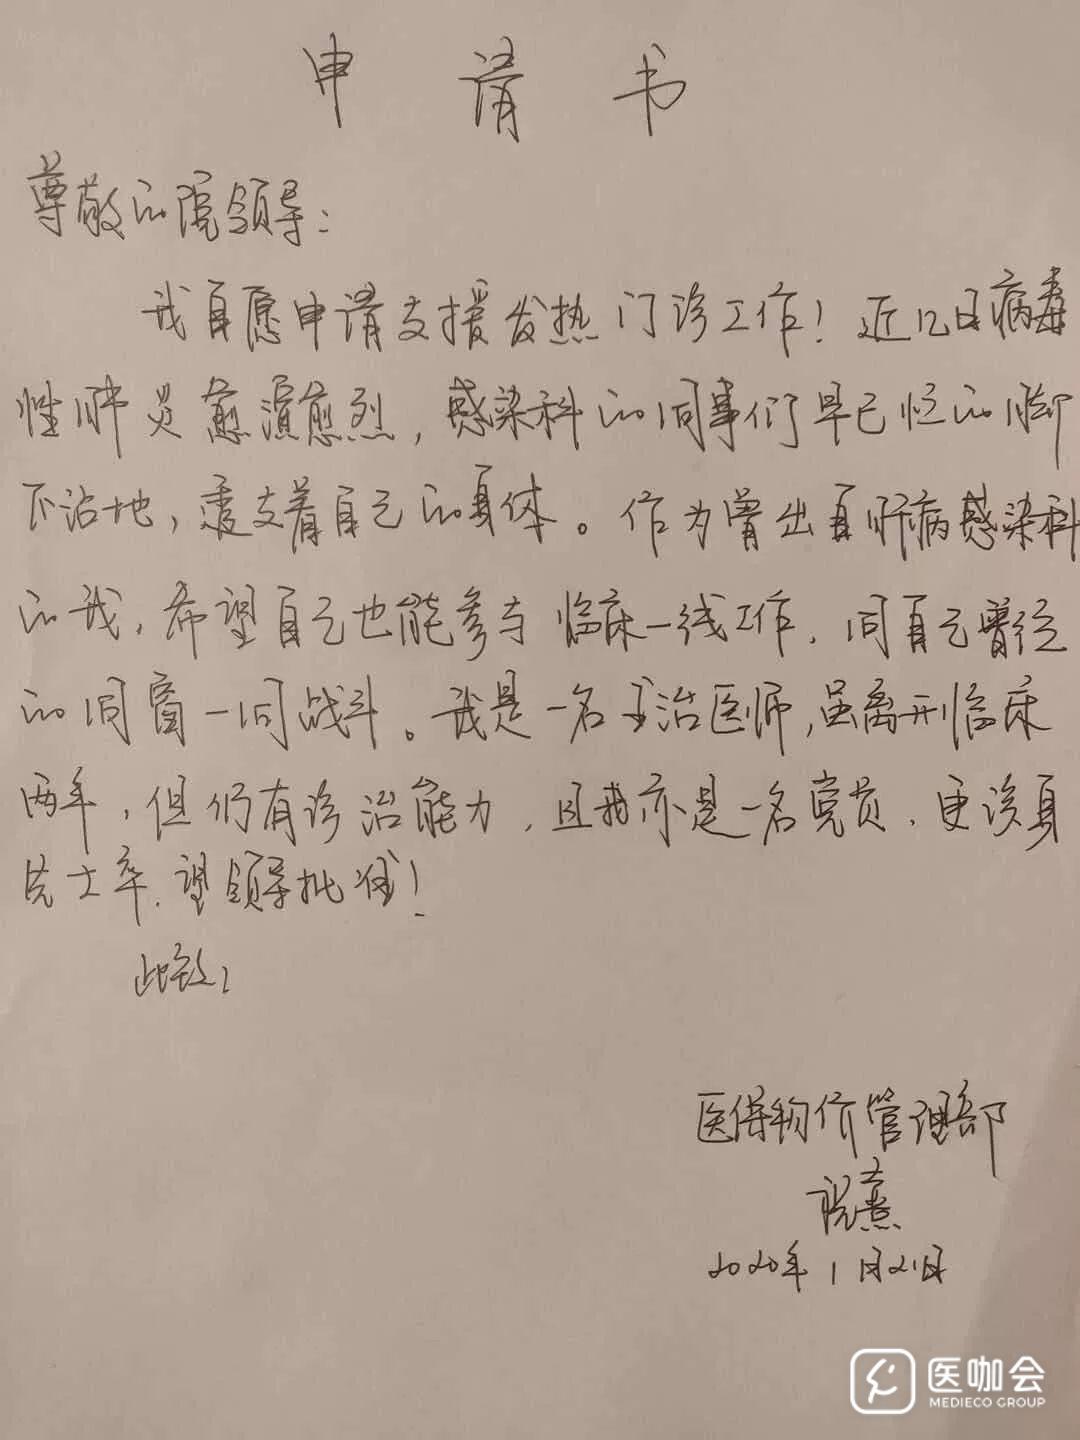 申请书
尊敬的院领导：
我自愿申请支援发热门诊工作！近几日病毒
性肺炎愈演愈烈，感染科的同事们早已忙的脚
不沾地，透支着自己的身体。作为曾出自肝病感染科
的我，希望自己也能参与临床一线工作，同自己曾经
的同窗一同战斗。我是一名主治医师，虽离开临床
两年，但仍有诊治能力，且我亦是一名党员，更该身
先士卒．望领导批准！
此致！
医保物价管理部
祝熹
2020年1月21日
医咖会
MEDIECO GROUP